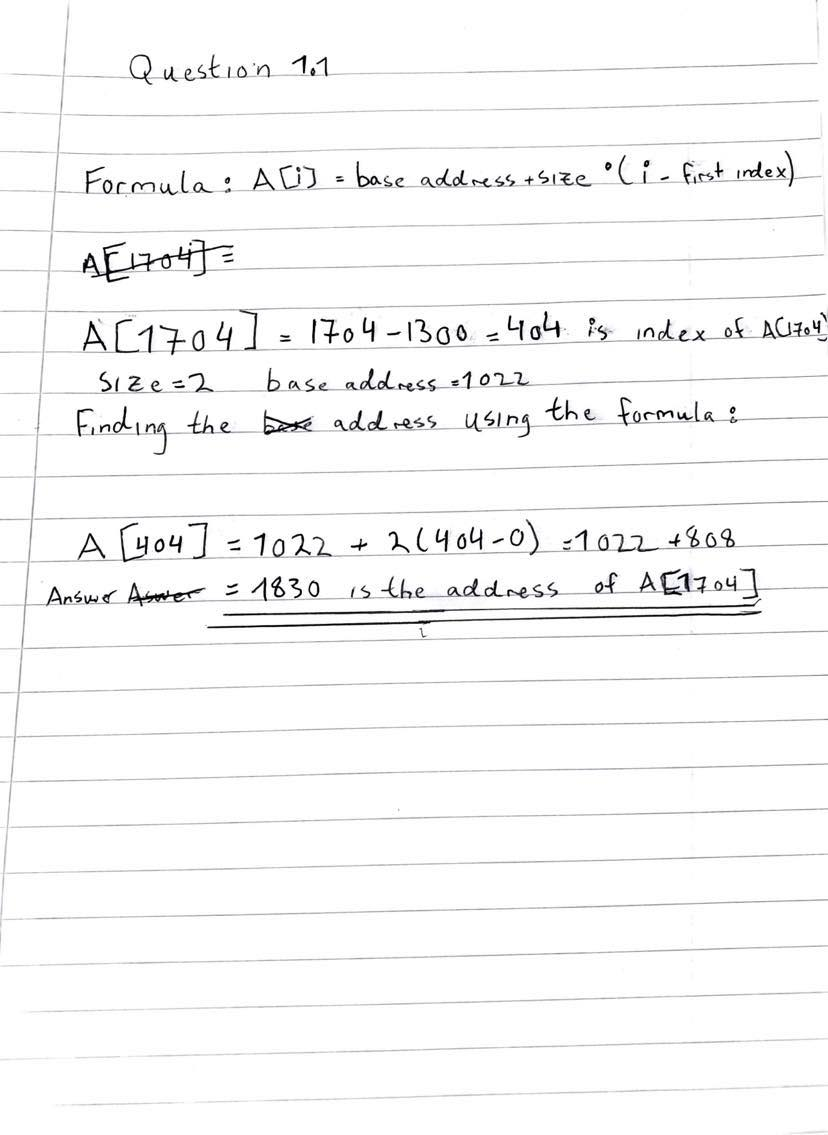 Question 1.1
Formula: A[i] = base address + size • (i - first index)
A[1704] =
A[1704] = 1704 - 1300 = 404 is index of A[1704]
size = 2 base address = 1022
Finding the base address using the formula:
A [404] = 1022 + 2(404-0) = 1022 + 808
Answer Aswer = 1830 is the address of A[1704]